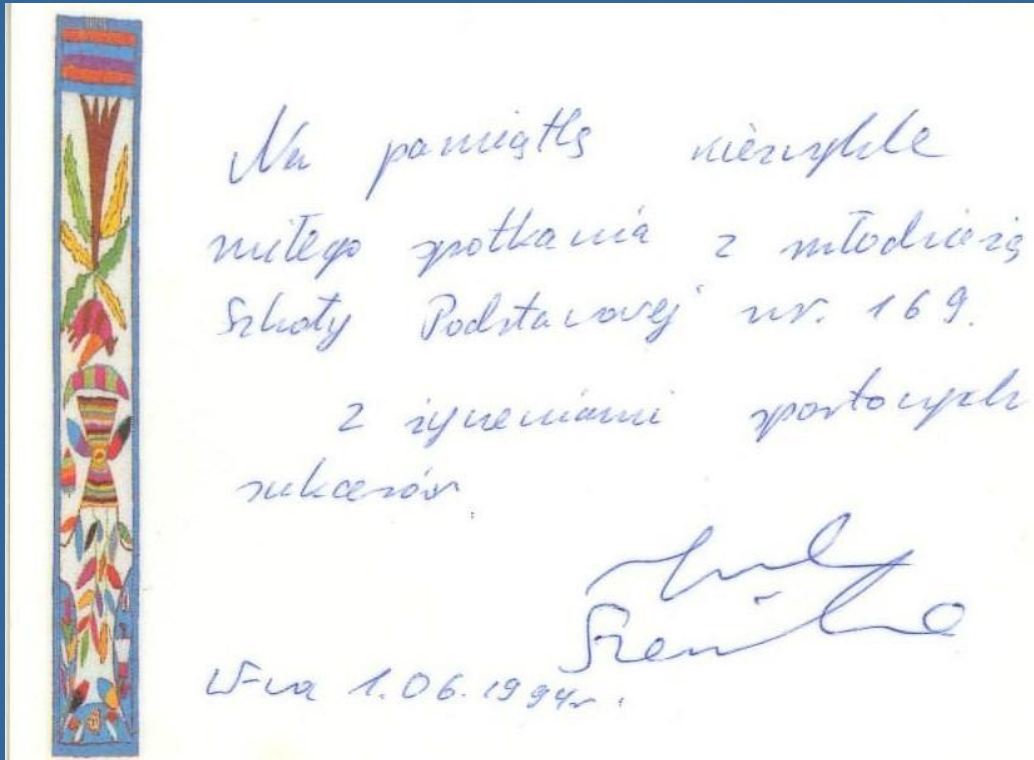 Na pamiątkę niezwykle
miłego spotkania z młodzieżą
Szkoły Podstawowej nr. 169.
z życzeniami sportowych
sukcesów
W-wa 1.06.1994r.